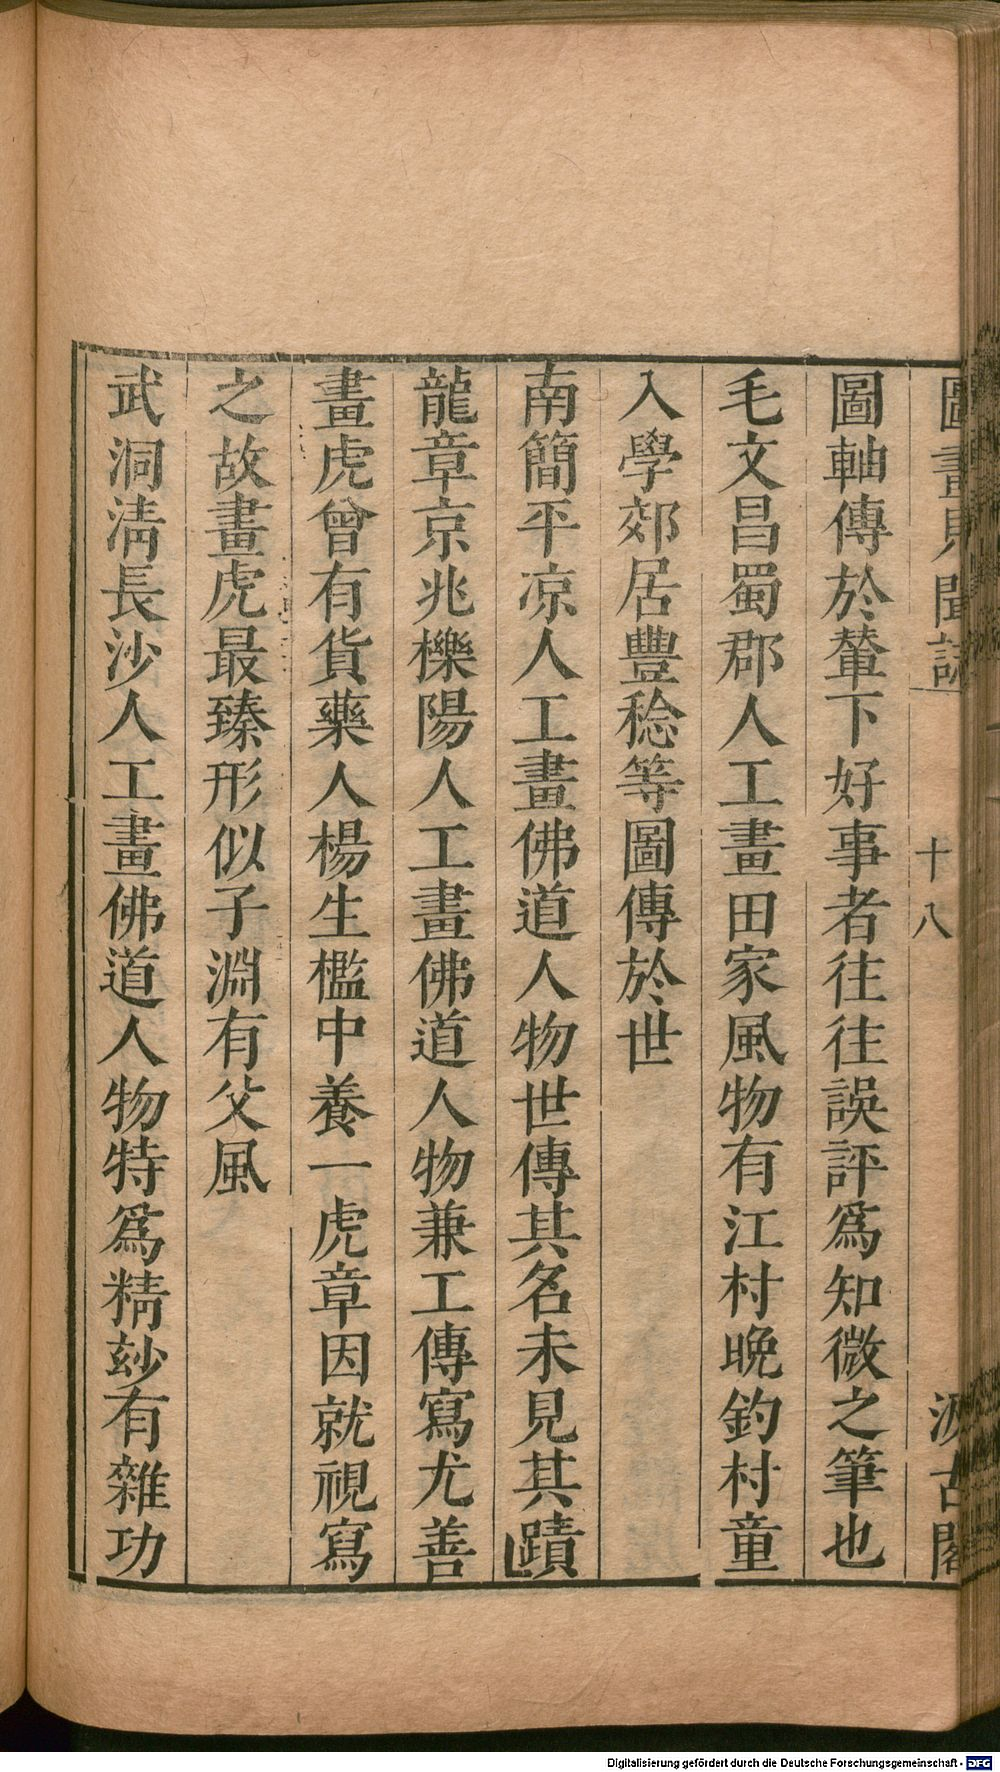 圖畫見聞誌 十八 汲古閣
圖軸傳於輦下好事者往往誤評爲知微之筆也
毛文昌蜀郡人工畫田家風物有江村晚釣村童
入學郊居豐稔等圖傳於世
南簡平凉人工畫佛道人物世傳其名未見其蹟
龍章京兆櫟陽人工畫佛道人物兼工傳寫尤善
畫虎曾有貨藥人楊生檻中養一虎章因就視寫
之故畫虎最臻形似子淵有父風
武洞淸長沙人工畫佛道人物特爲精玅有雜功
Digitalisierung gefördert durch die Deutsche Forschungsgemeinschaft - DFG